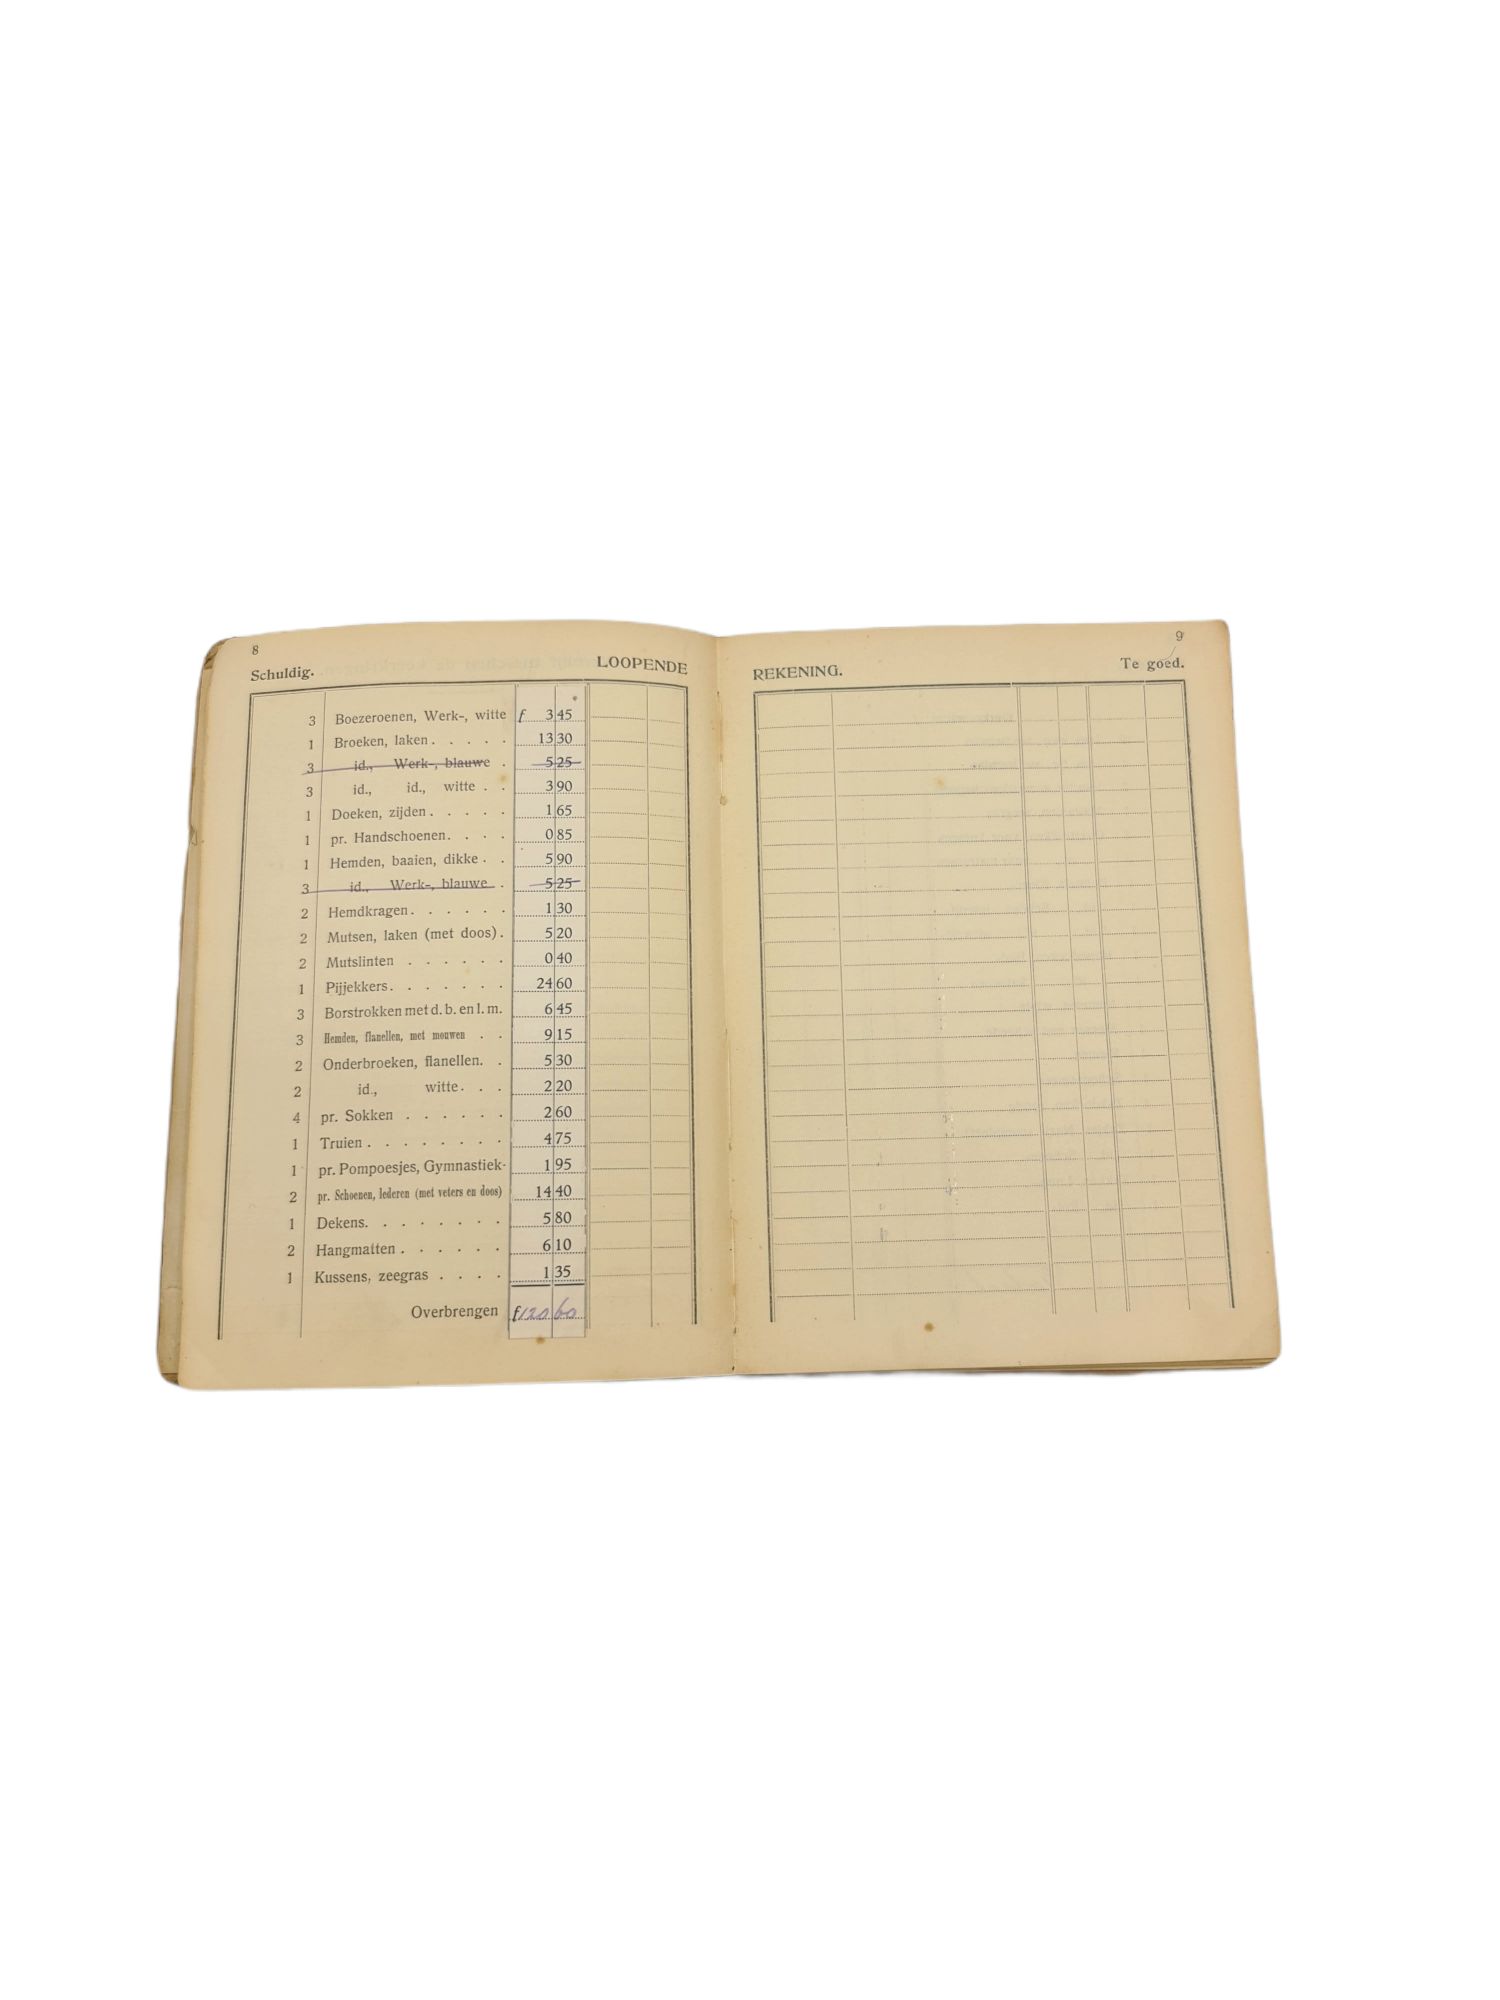 8
Schuldig. LOOPENDE
3 Boezeroenen, Werk-, witte f 3 45
1 Broeken, laken . . . . . 13 30
3 id., Werk-, blauwe . 5 25
3 id., id., witte . . 3 90
1 Doeken, zijden . . . . . 1 65
1 pr. Handschoenen . . . . 0 85
1 Hemden, baaien, dikke . . 5 90
3 id., Werk-, blauwe . 5 25
2 Hemdkragen . . . . . . 1 30
2 Mutsen, laken (met doos) . 5 20
2 Mutslinten . . . . . . 0 40
1 Pijjekkers . . . . . . . 24 60
3 Borstrokken met d. b. en l. m. 6 45
3 Hemden, flanellen, met mouwen . . 9 15
2 Onderbroeken, flanellen . . 5 30
2 id., witte . . . 2 20
4 pr. Sokken . . . . . . 2 60
1 Truien . . . . . . . . 4 75
1 pr. Pompoesjes, Gymnastiek- 1 95
2 pr. Schoenen, lederen (met veters en doos) 14 40
1 Dekens . . . . . . . 5 80
2 Hangmatten . . . . . . 6 10
1 Kussens, zeegras . . . . 1 35
Overbrengen f 120 60
9
REKENING. Te goed.